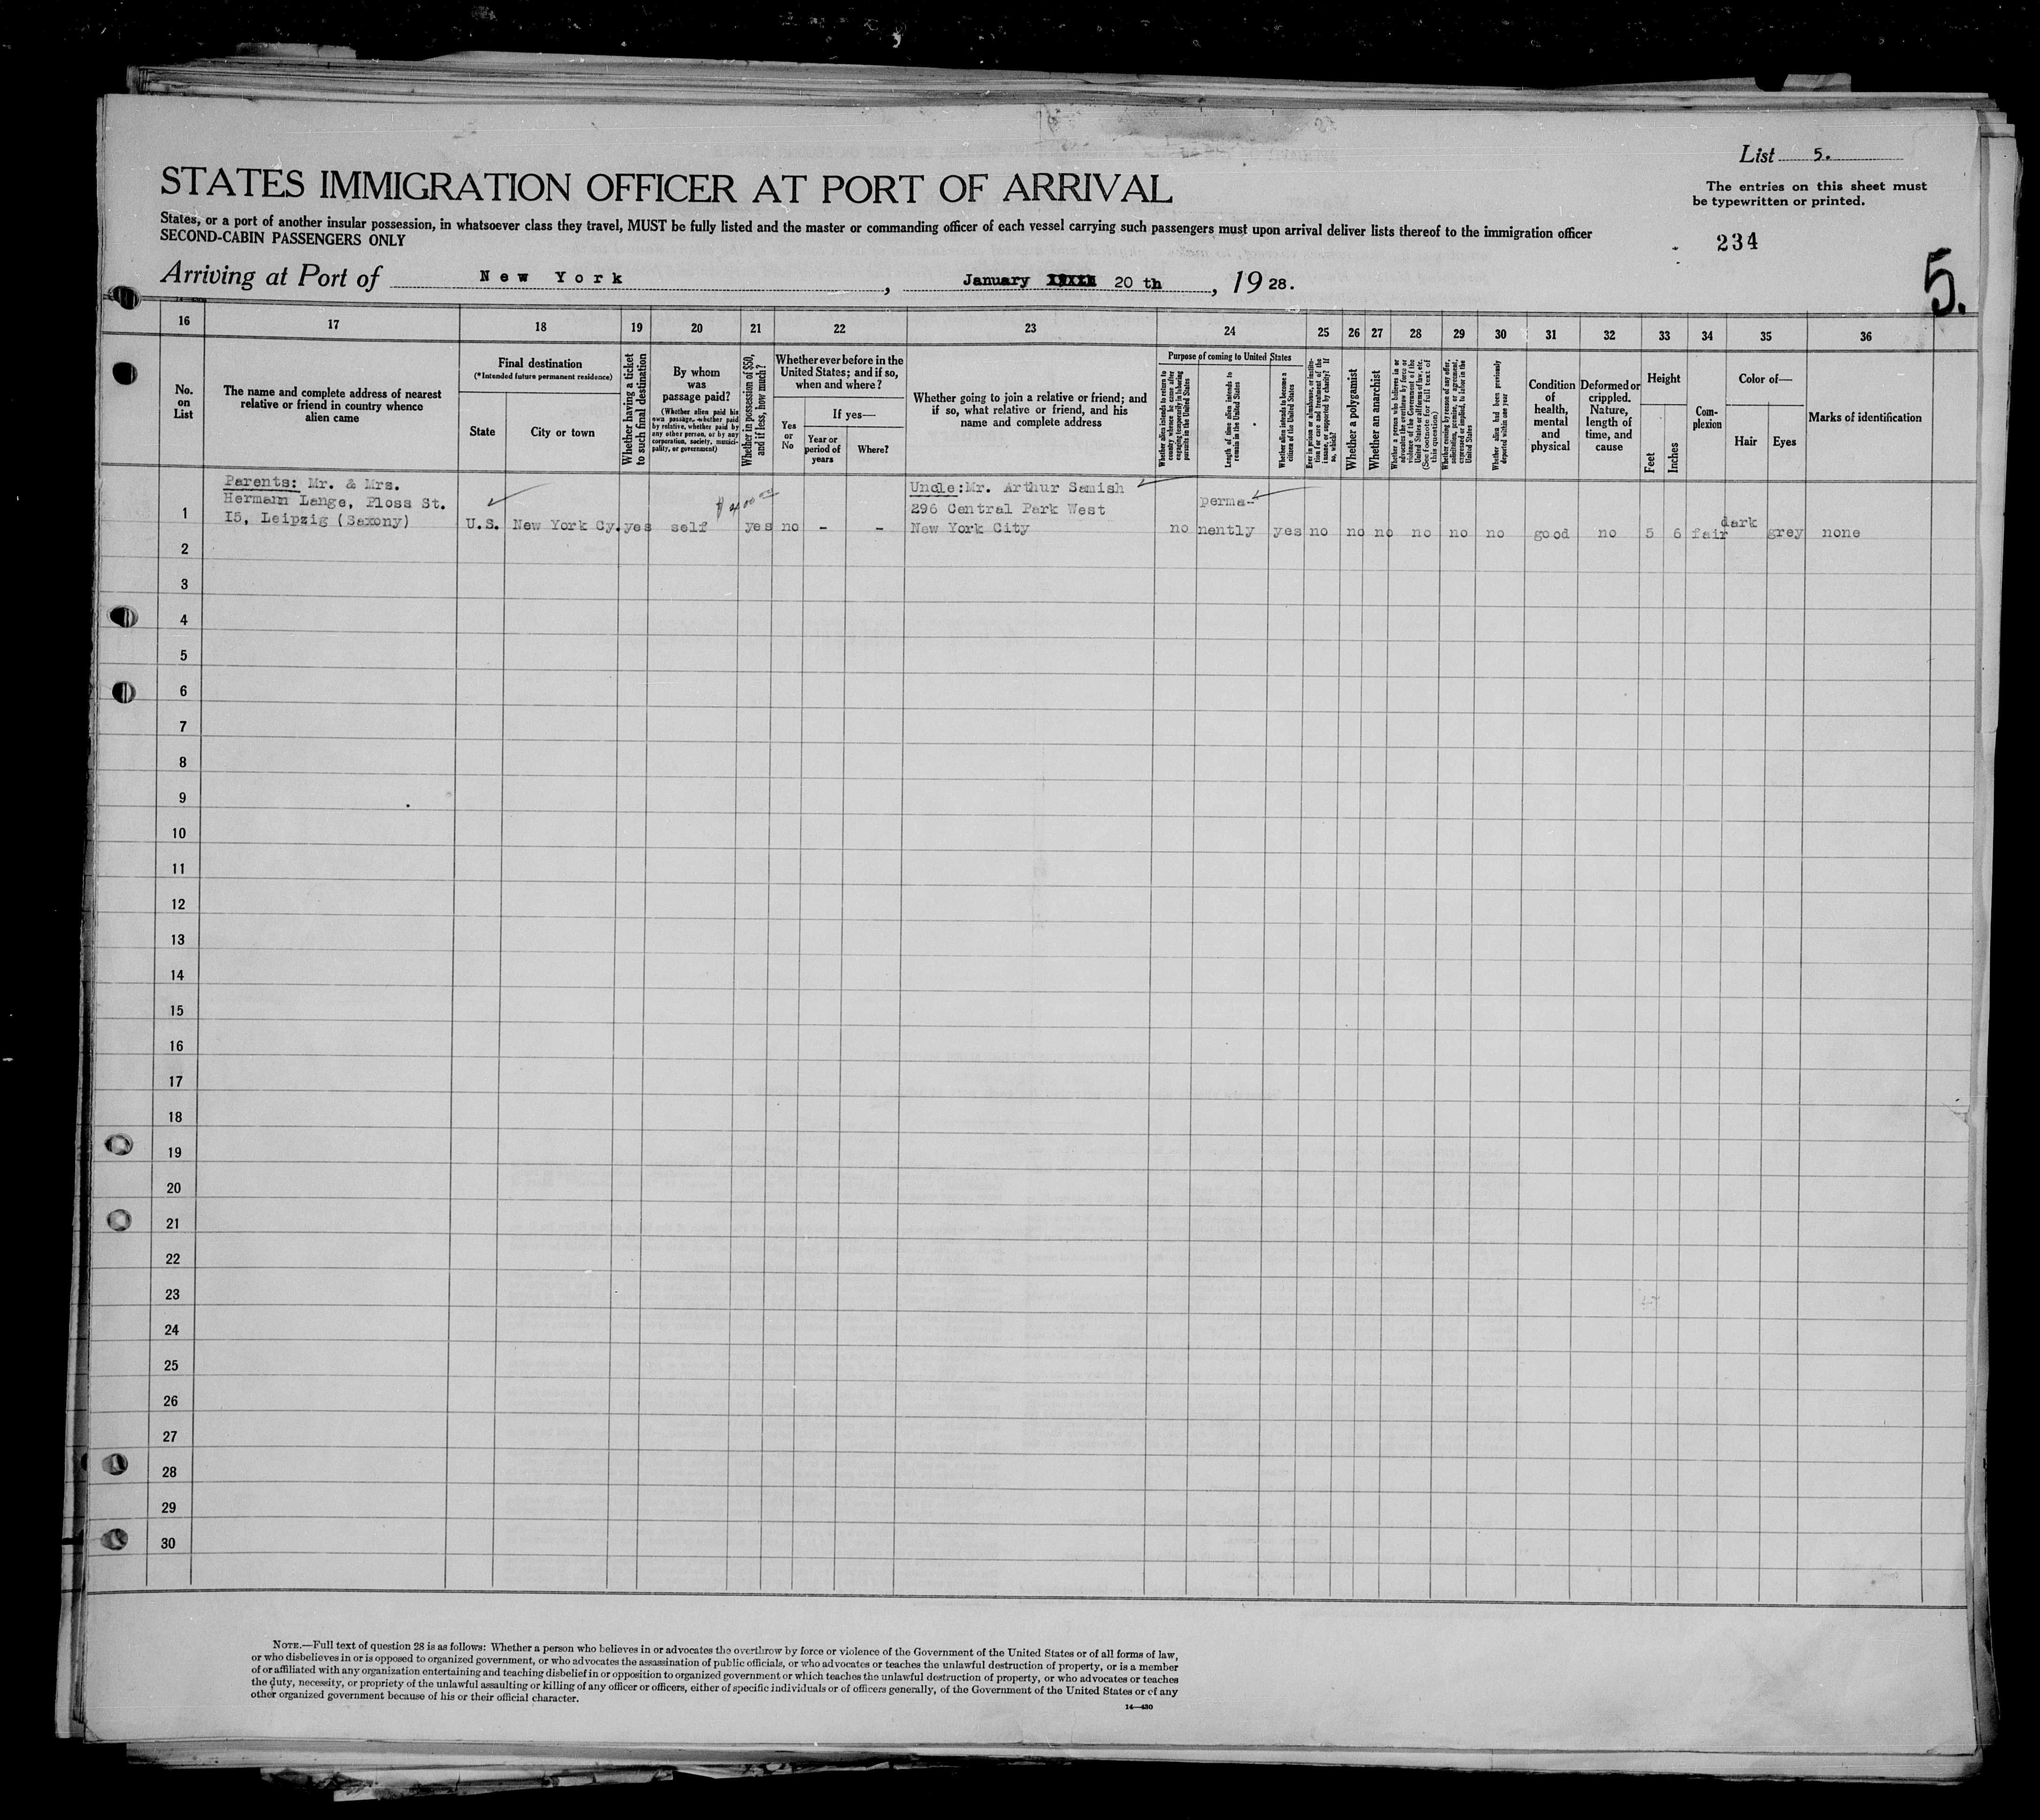 List 5.
STATES IMMIGRATION OFFICER AT PORT OF ARRIVAL
The entries on this sheet must
be typewritten or printed.
States, or a port of another insular possession, in whatsoever class they travel, MUST be fully listed and the master or commanding officer of each vessel carrying such passengers must upon arrival deliver lists thereof to the immigration officer
SECOND-CABIN PASSENGERS ONLY
234
5.
Arriving at Port of New York, January 20 th, 1928.
16 17 18 19 20 21 22 23 24 25 26 27 28 29 30 31 32 33 34 35 36
No.
on
List
The name and complete address of nearest
relative or friend in country whence
alien came
Final destination
(*Intended future permanent residence)
State
City or town
Whether having a ticket
to such final destination
By whom
was
passage paid?
(Whether alien paid his
own passage, whether paid
by relative, whether paid by
any other person, or by any
corporation, society, munici-
pality, or government)
Whether in possession of $50,
and if less, how much?
Whether ever before in the
United States; and if so,
when and where?
Yes
or
No
If yes—
Year or
period of
years
Where?
Whether going to join a relative or friend; and
if so, what relative or friend, and his
name and complete address
Purpose of coming to United States
Whether alien intends to return to
country whence he came after
engaging temporarily in laboring
pursuits in the United States
Length of time alien intends to
remain in the United States
Whether alien intends to become a
citizen of the United States
Ever in prison or almshouse, or institu-
tion for care and treatment of the
insane, or supported by charity? If
so, which?
Whether a polygamist
Whether an anarchist
Whether a person who believes in or
advocates the overthrow by force or
violence of the Government of the
United States or all forms of law, etc.
(See footnote for full text of
this question)
Whether coming by reason of any offer,
solicitation, promise, or agreement,
expressed or implied, to labor in the
United States
Whether alien had been previously
deported within one year
Condition
of
health,
mental
and
physical
Deformed or
crippled.
Nature,
length of
time, and
cause
Height
Feet
Inches
Com-
plexion
Color of—
Hair
Eyes
Marks of identification
Parents: Mr. & Mrs.
Hermann Lange, Ploss St.
15, Leipzig (Saxony)
1
U.S. New York Cy. yes self yes no - -
Uncle: Mr. Arthur Samish
296 Central Park West
New York City
no perma-
nently yes no no no no no no good no 5 6 fair dark grey none
2
3
4
5
6
7
8
9
10
11
12
13
14
15
16
17
18
19
20
21
22
23
24
25
26
27
28
29
30
NOTE.—Full text of question 28 is as follows: Whether a person who believes in or advocates the overthrow by force or violence of the Government of the United States or of all forms of law,
or who disbelieves in or is opposed to organized government, or who advocates the assassination of public officials, or who advocates or teaches the unlawful destruction of property, or is a member
of or affiliated with any organization entertaining and teaching disbelief in or opposition to organized government or which teaches the unlawful destruction of property, or who advocates or teaches
the duty, necessity, or propriety of the unlawful assaulting or killing of any officer or officers, either of specific individuals or of officers generally, of the Government of the United States or of any
other organized government because of his or their official character.
14—430